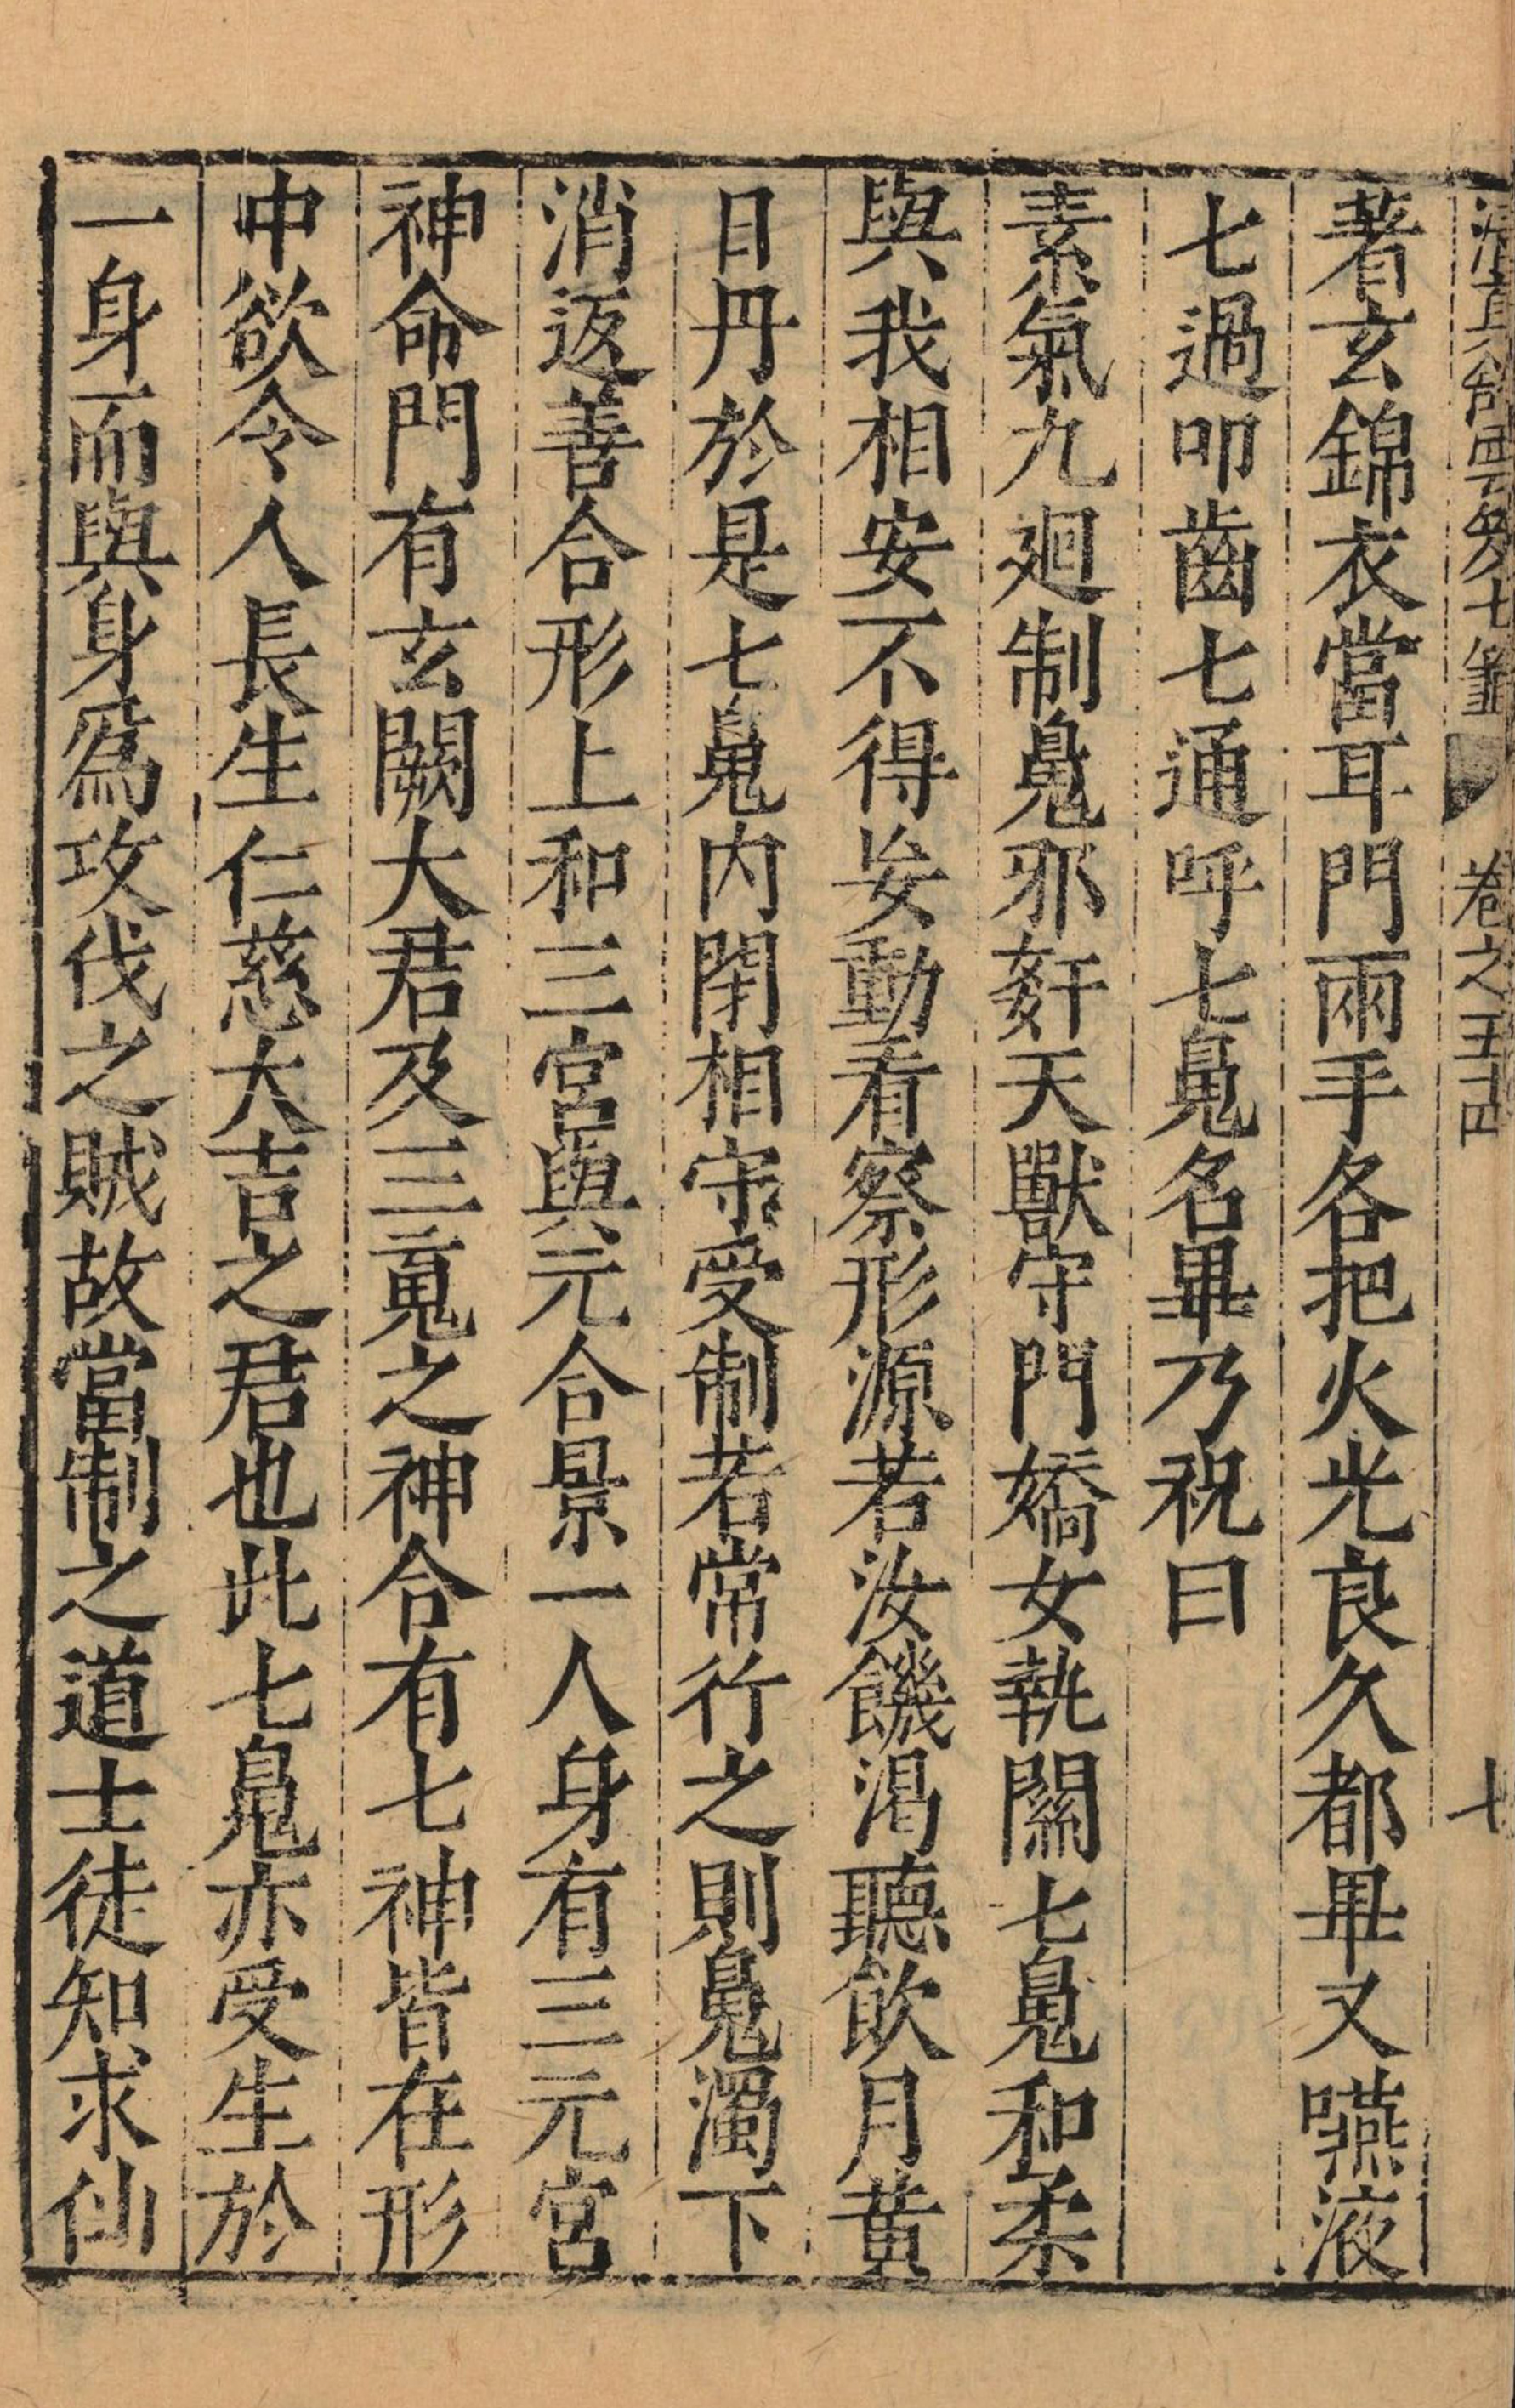 卷之五十四
七
著玄錦衣當耳門兩手各把火光良久都畢又嚥液
七過叩齒七通呼七鬼名畢乃祝曰
素氣九廻制鬼邪姧天獸守門嬌女執關七鬼和柔
與我相安不得妄動看察形源若汝饑渴聽飲月黄
日丹於是七鬼内閉相守受制若常行之則鬼濁下
消返善合形上和三宮與元合景一人身有三元宮
神命門有玄闕大君及三䰟之神合有七神皆在形
中欲令人長生仁慈大吉之君也此七鬼亦受生於
一身而與身爲攻伐之賊故當制之道士徒知求仙